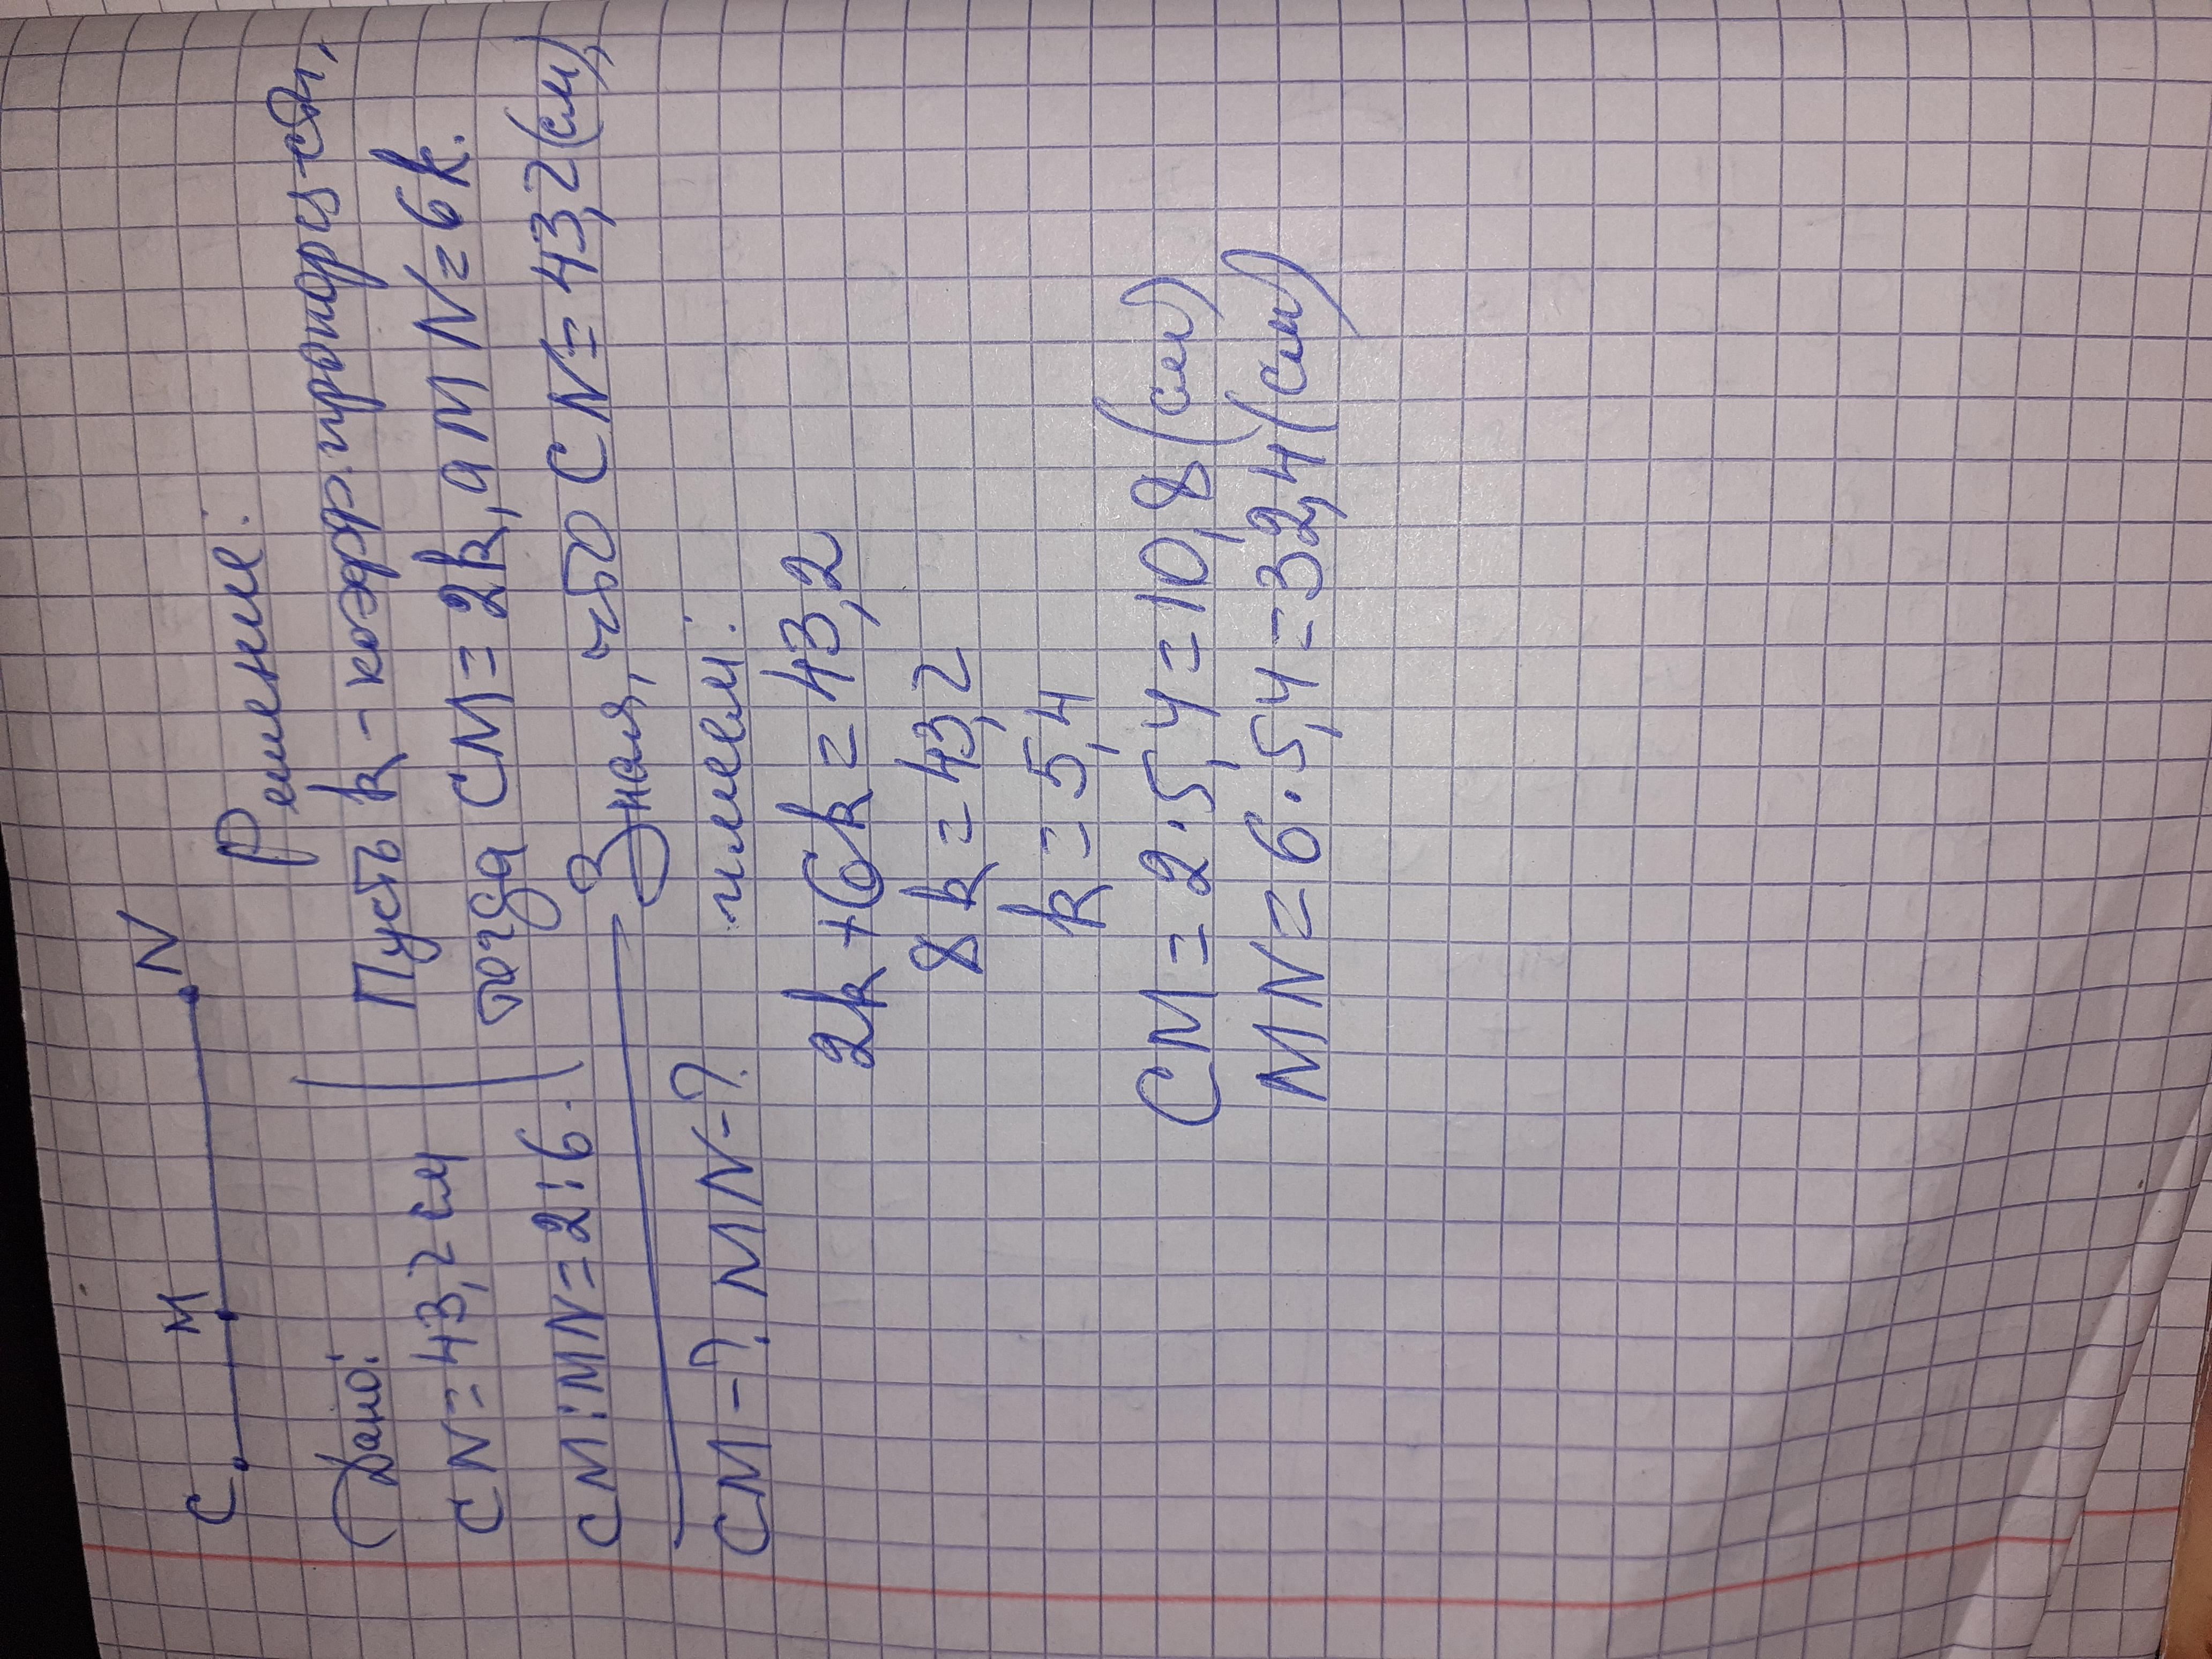 C M N
Дано:
CN = 43,2 см
CM : MN = 2 : 6.
CM - ? MN - ?
Решение:
Пусть k - коэфф. пропорц-сти,
тогда CM = 2k, а MN = 6k.
Зная, что CN = 43,2 (см),
имеем:
2k + 6k = 43,2
8k = 43,2
k = 5,4
CM = 2 · 5,4 = 10,8 (см)
MN = 6 · 5,4 = 32,4 (см)